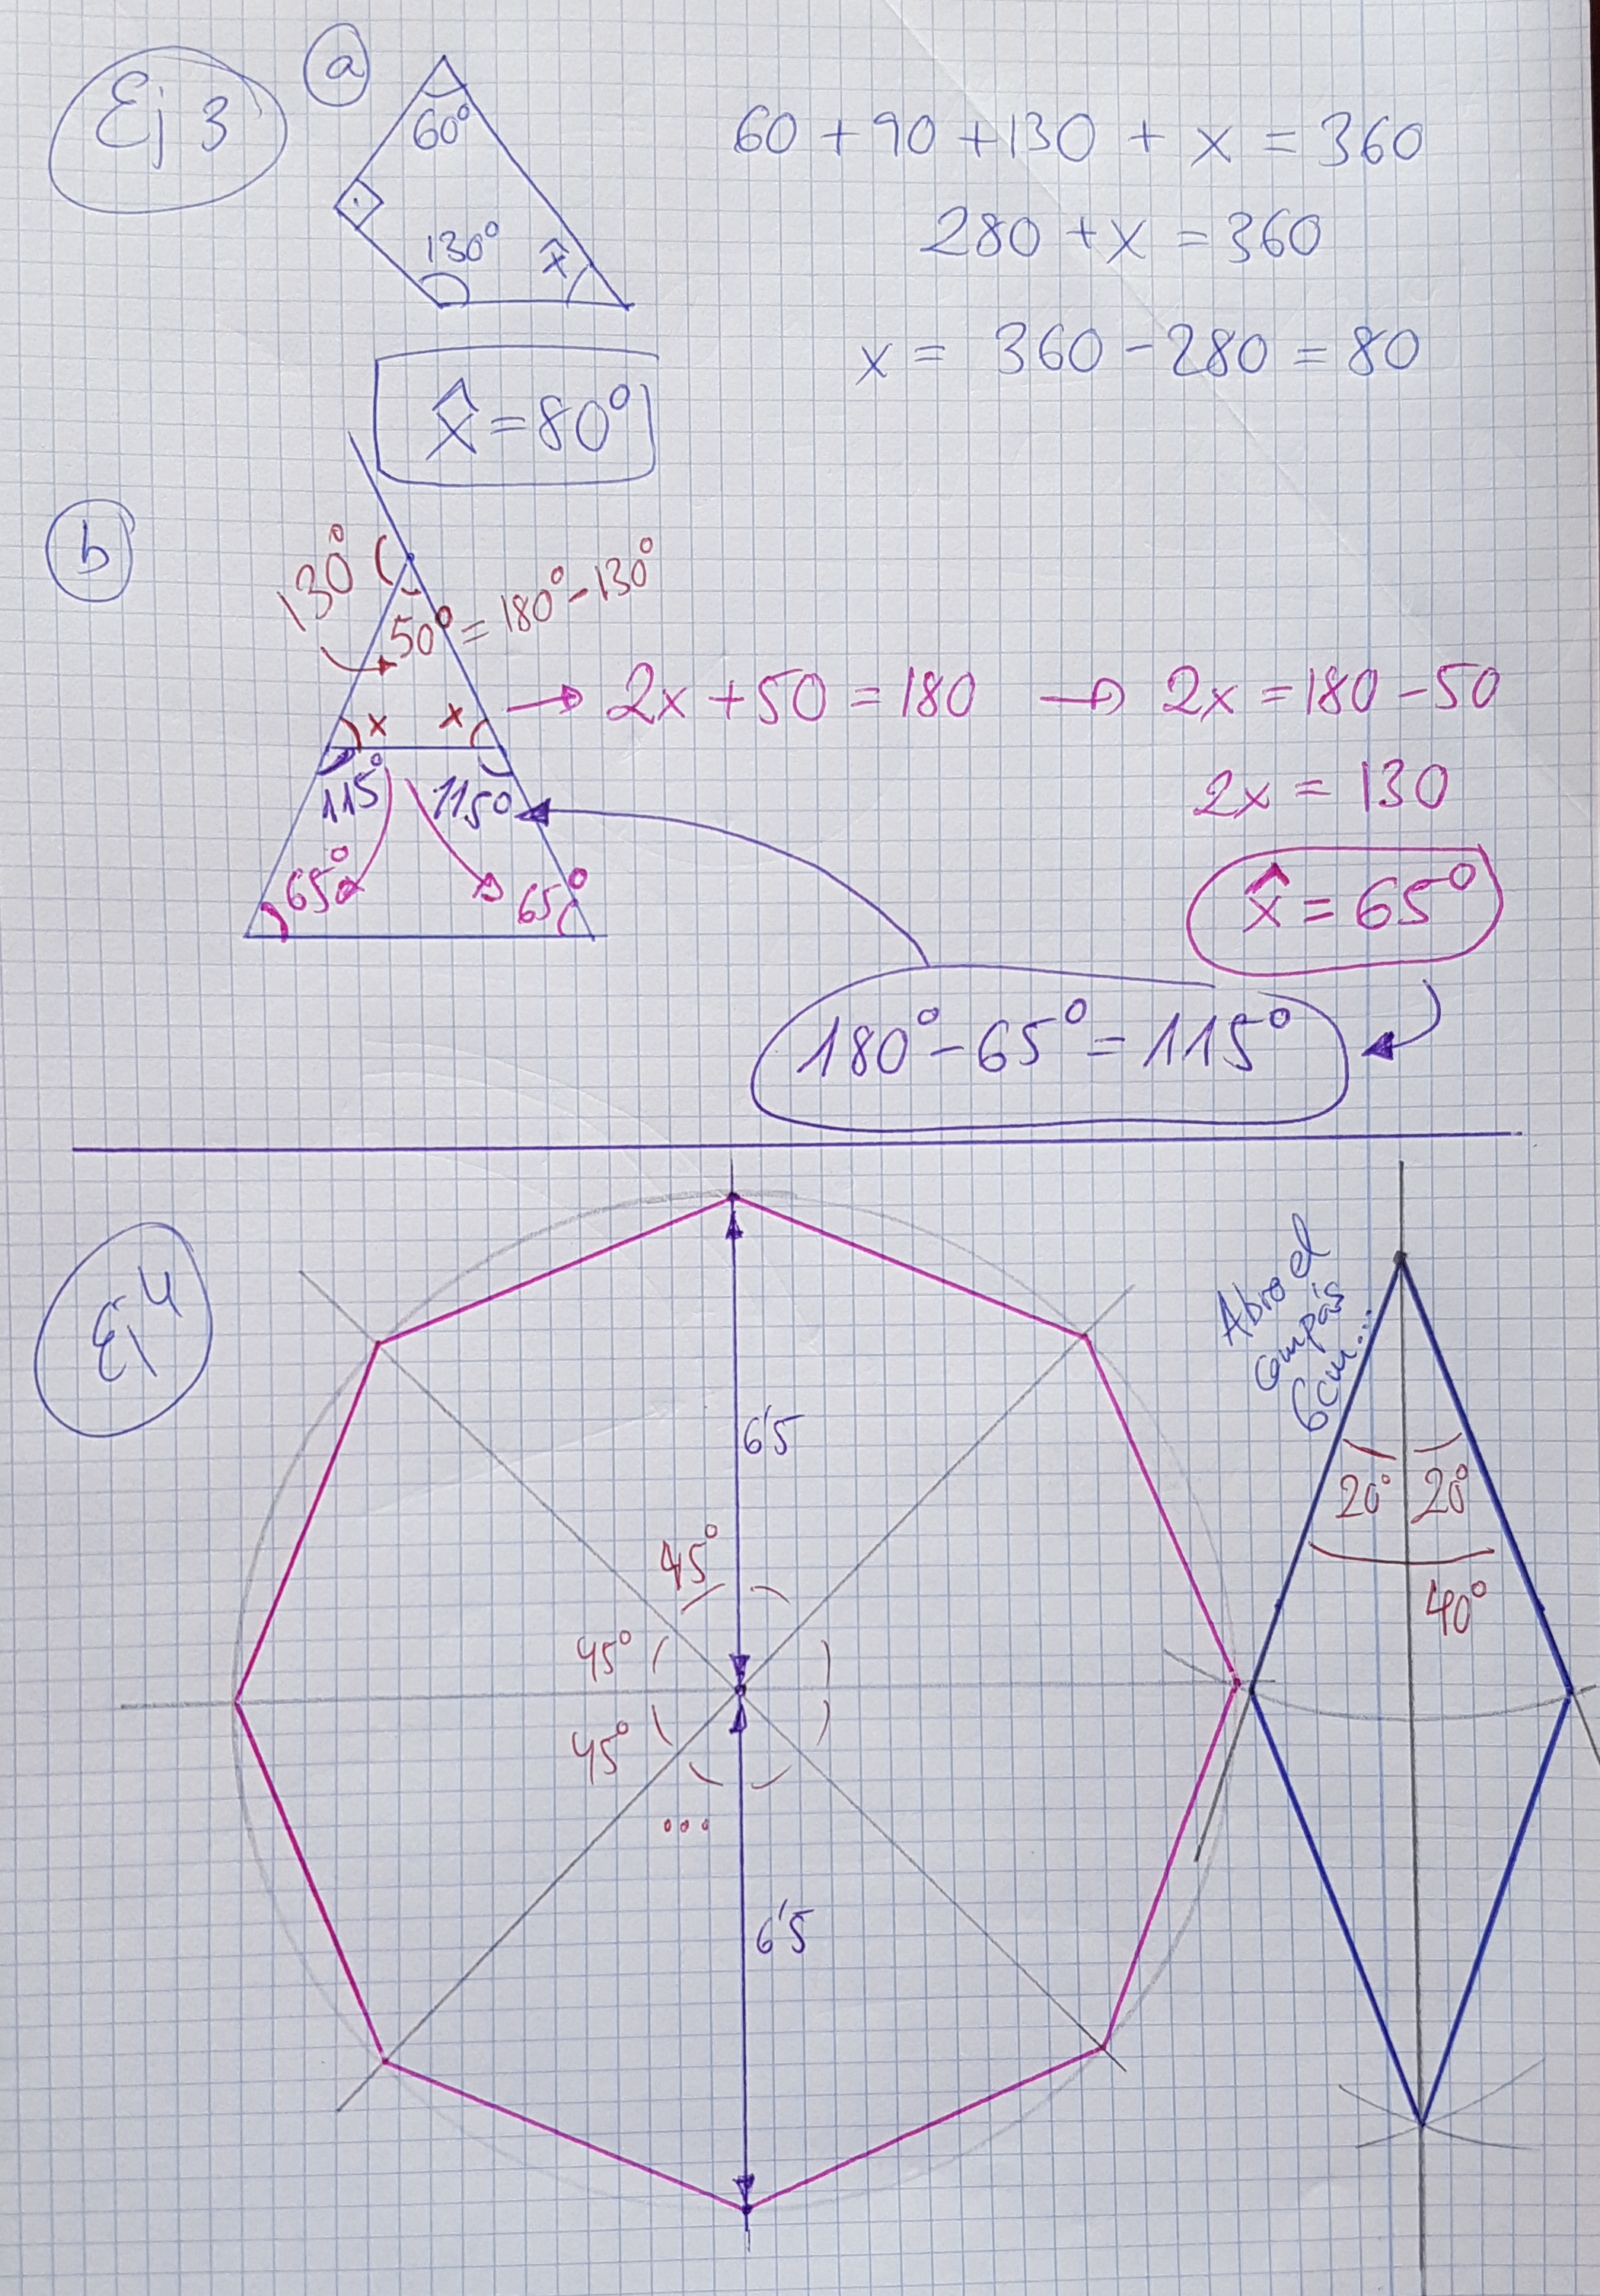 Ej 3
a
60°
60 + 90 + 130 + x = 360
130°
x̂
280 + x = 360
x = 360 - 280 = 80
x̂ = 80°
b
130°
50° = 180° - 130°
x x
→ 2x + 50 = 180 → 2x = 180 - 50
115° 115°
2x = 130
65° 65°
x̂ = 65°
180° - 65° = 115°
Ej 4
Abro el
compás
6cm...
6'5
20° 20°
45°
40°
45°
45°
...
6'5